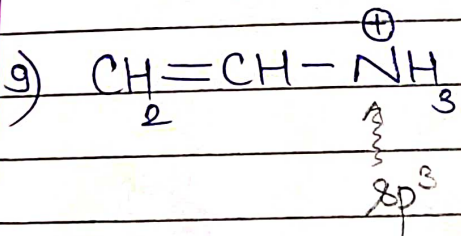 9) CH₂=CH-N⊕H₃
sp³